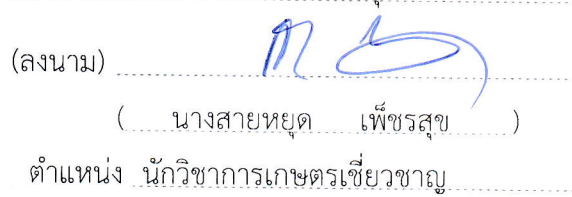 (ลงนาม)
( นางสายหยุด เพ็ชรสุข )
ตำแหน่ง นักวิชาการเกษตรเชี่ยวชาญ